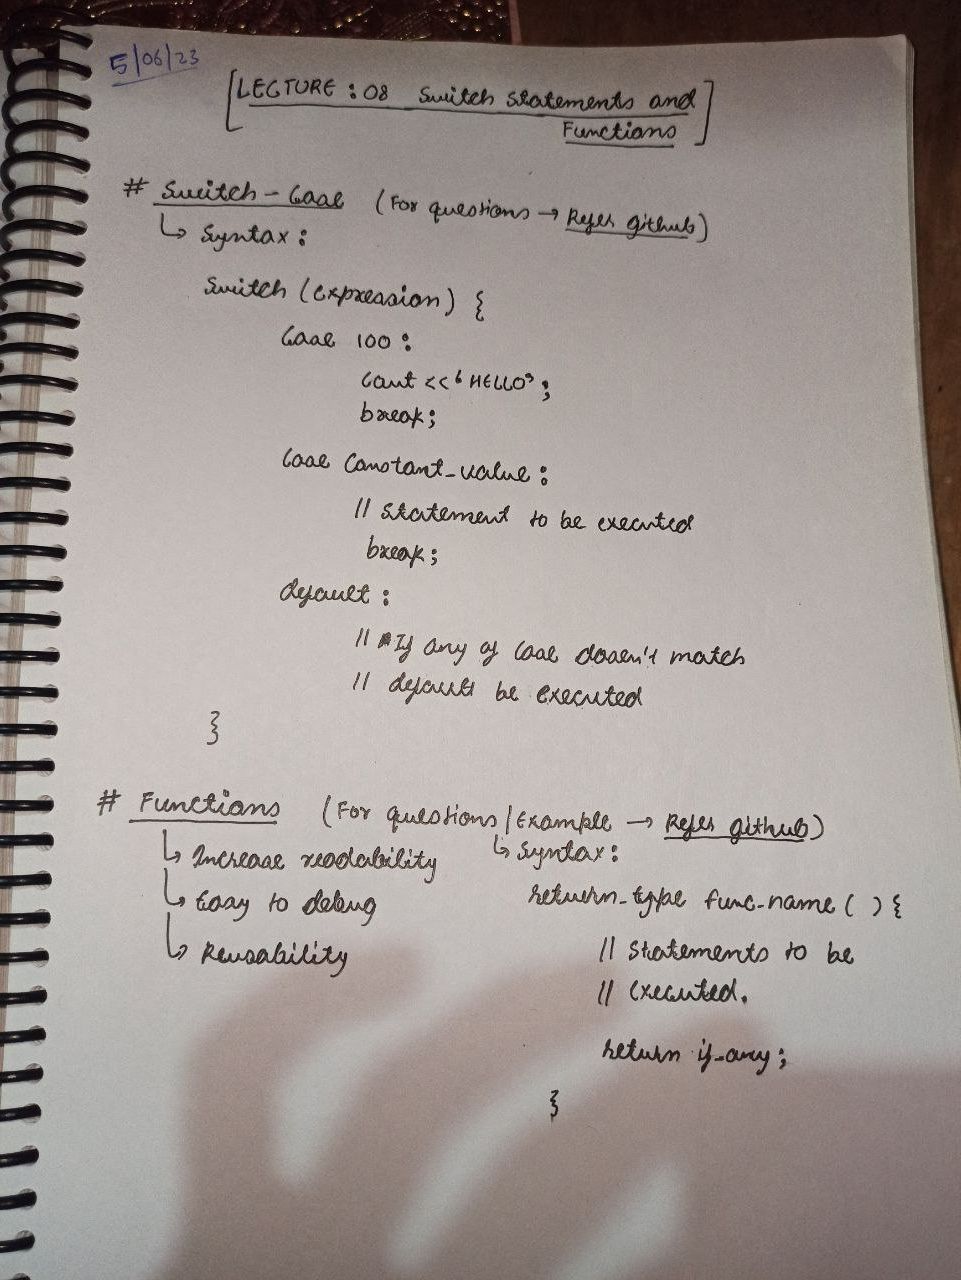 5/06/23
[LECTURE : 08 Switch Statements and
Functions]
# Switch - Case (For questions → Refer github)
↳ Syntax :
Switch (expression) {
Case 100 :
Cout << ‘HELLO’ ;
break ;
Case Constant_value :
// Statement to be executed
break ;
default :
// If any of Case doesn't match
// default be executed
}
# Functions (For questions / Example → Refer github)
↳ Increase readability
↳ Easy to debug
↳ Reusability
↳ Syntax :
return_type func_name ( ) {
// Statements to be
// executed.
return if_any ;
}